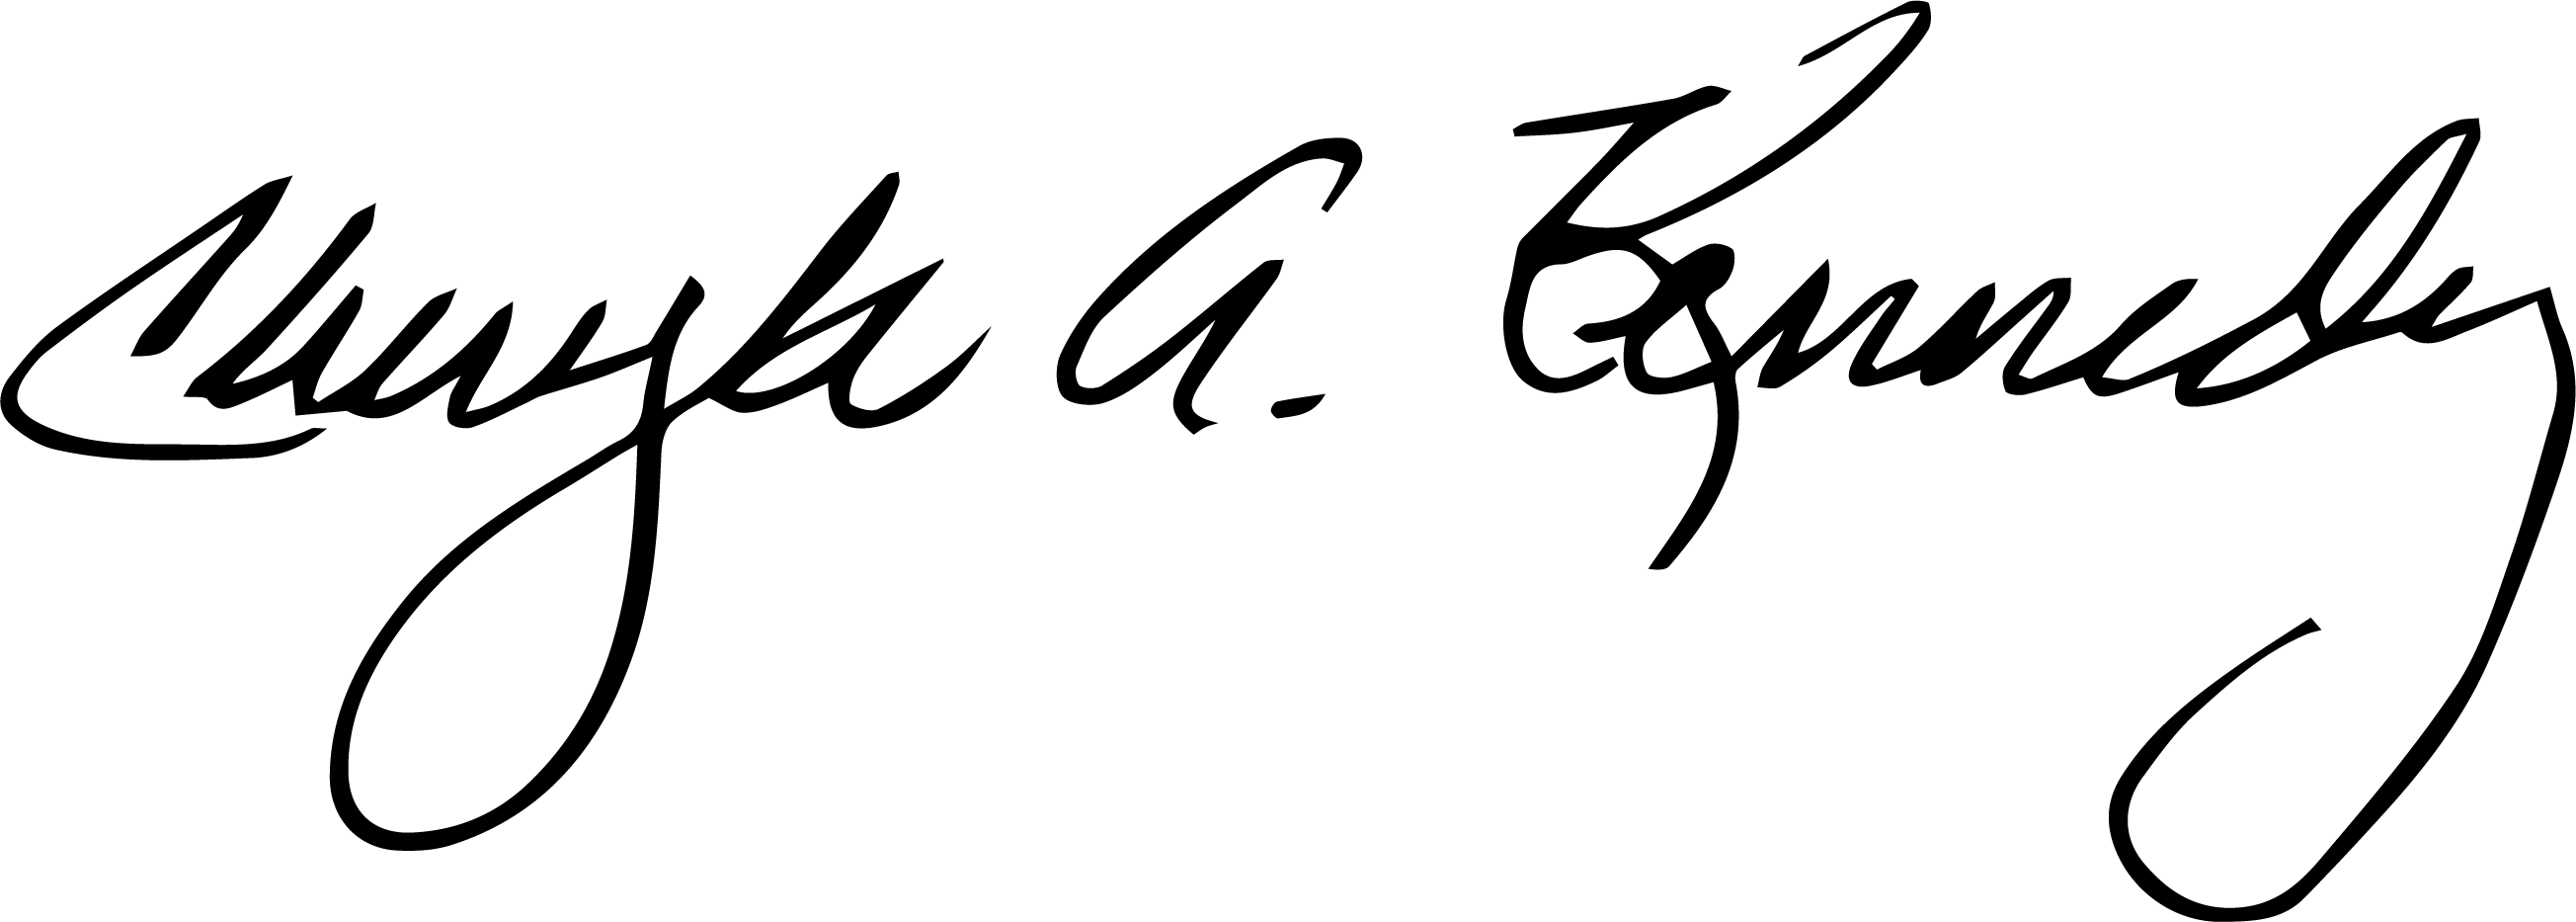 Cheryle A. Kennedy